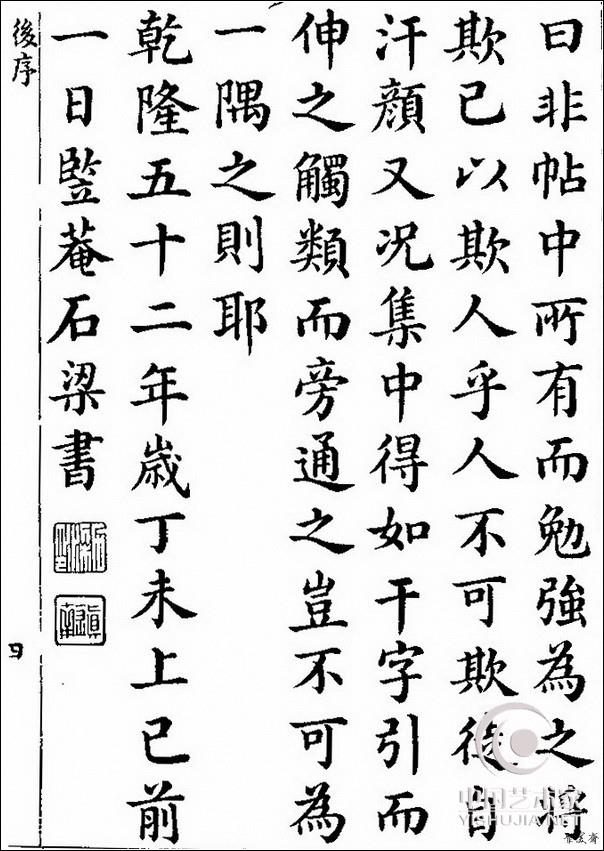 曰非帖中所有而勉強為之將
欺己以欺人乎人不可欺徒自
汗顏又况集中得如干字引而
伸之觸類而旁通之豈不可為
一隅之則耶
乾隆五十二年歲丁未上巳前
一日竪菴石梁書
後序
中国艺术家
YISHUJIA.NET